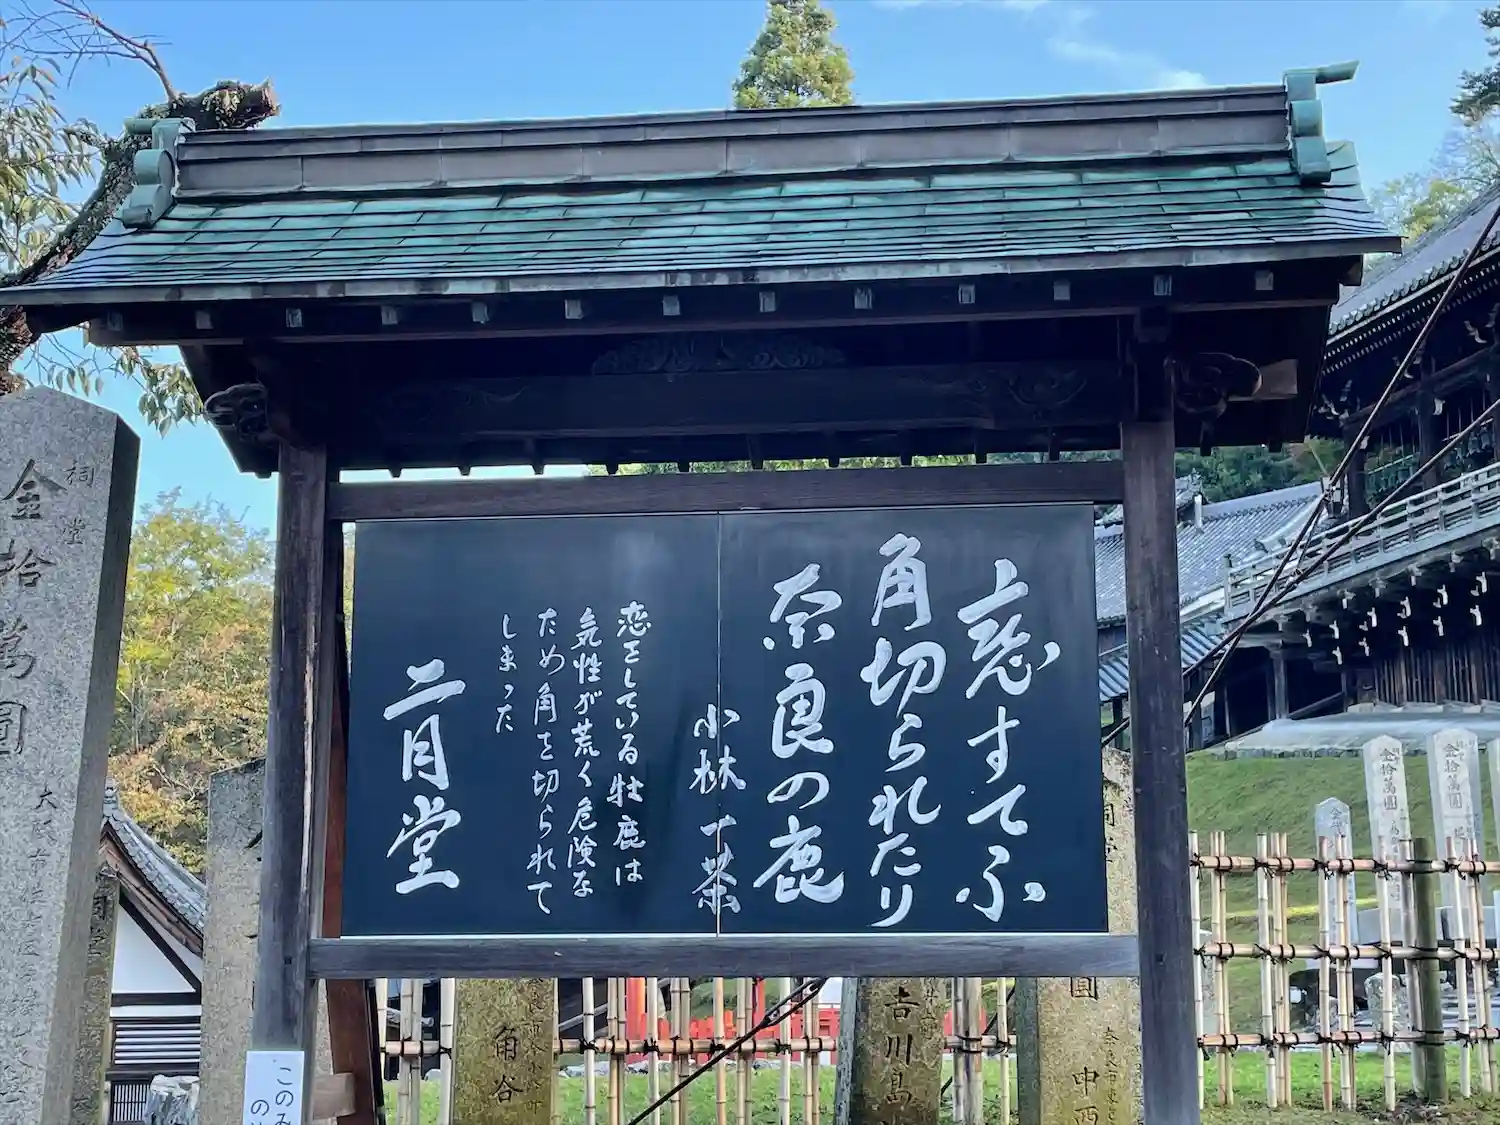 恋すてふ
角切られたり
奈良の鹿
小林一茶
恋をしている牡鹿は
気性が荒く危険な
ため角を切られて
しまった
二月堂
祠堂
金拾萬圓
金拾萬圓
金拾萬圓
角谷
吉川島
圓
奈良市
中西
このみ